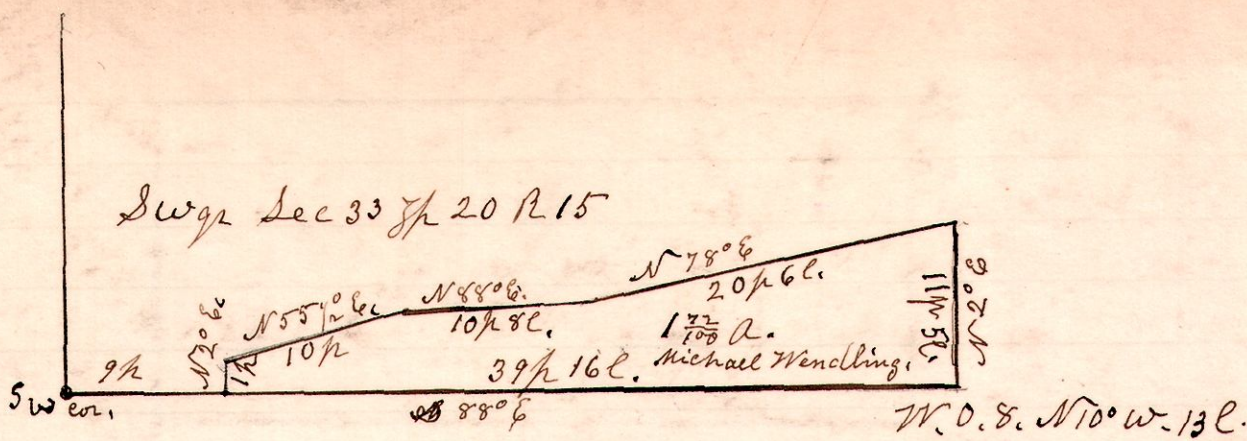 Swqr Sec 33 Tp 20 R 15
N 78° E
20p 6l.
N 88° E.
10p 8l.
N 55½° E.
10p
N 2° E.
1p
N 2° E
11p 5l.
1 72/100 A.
Michael Wendling.
9p
39p 16l.
S w cor.
88° E
W. O. 8. N 10° W - 13 l.